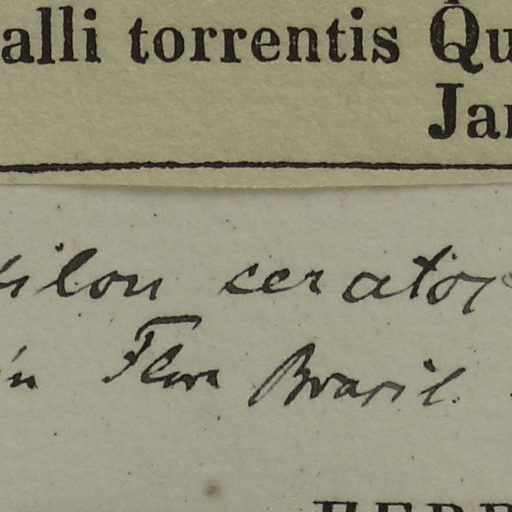 alli torrentis Qu
Jan
ilon cerator
in Flora Brasil.